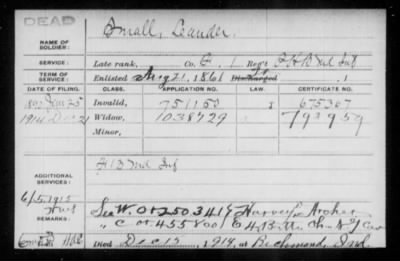 DEAD
NAME OF SOLDIER: Small, Leander.
SERVICE: Late rank, Co. G, 1 Reg't P.H.B. Md Inf
TERM OF SERVICE: Enlisted Aug 21, 1861 Discharged , 1
DATE OF FILING. CLASS. APPLICATION NO. LAW. CERTIFICATE NO.
Jan 25 Invalid, 751153 675367
1914 Dec 21 Widow, 1038729 793959
Minor,
ADDITIONAL SERVICES: 13 Md Inf
6/5.1915
REMARKS: See W. O. 2503414 Harvey Archer
" C. O. 455800 E 4 15 Cav
Died Dec 13, 1914, at Richmond, Ind